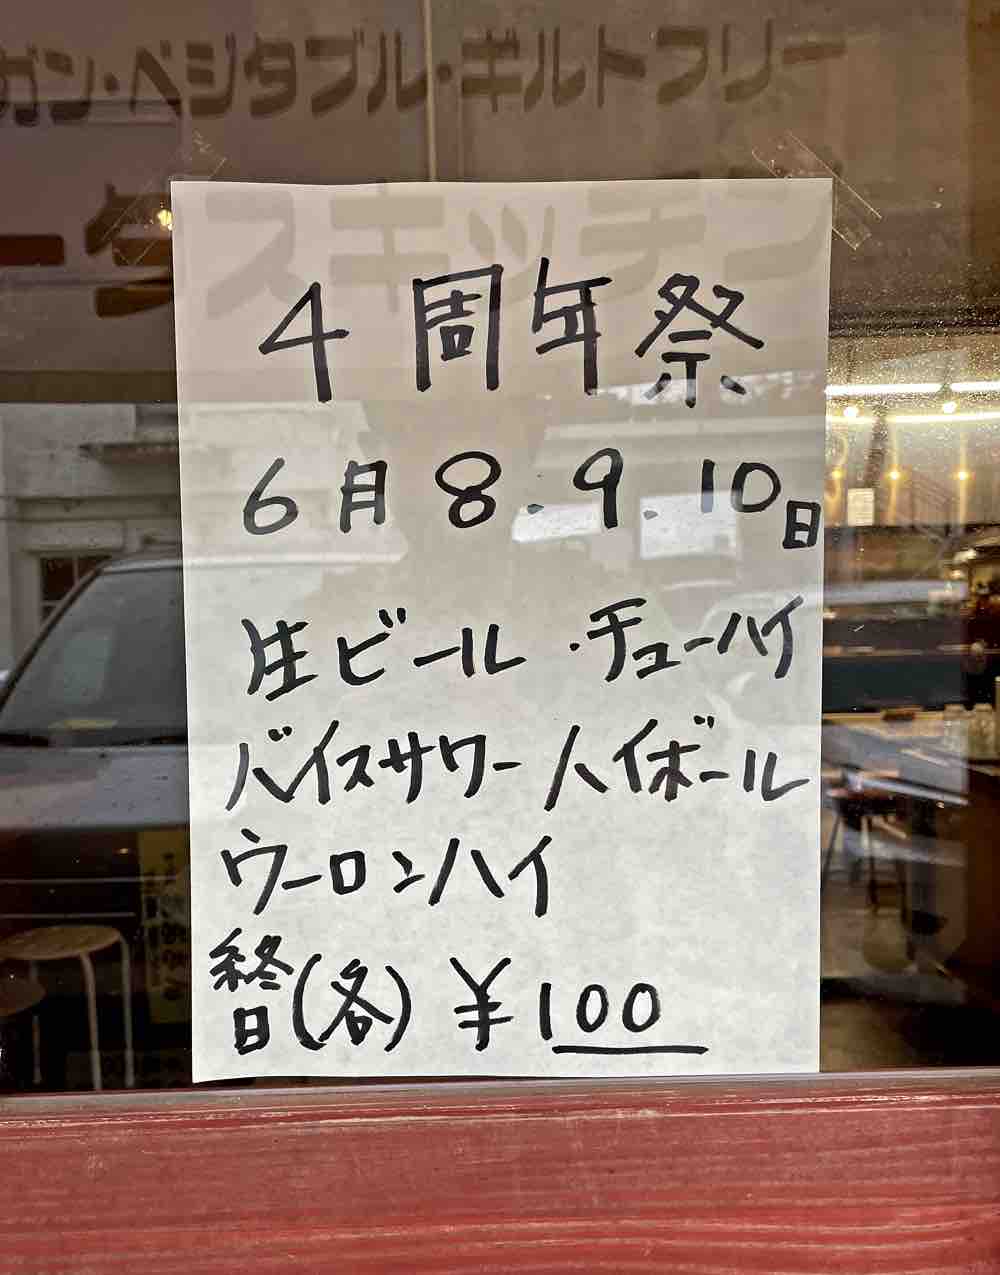 ガン・ベジタブル・ギルトフリー
ータスキッチン
4周年祭
6月8.9.10日
生ビール・チューハイ
バイスサワー ハイボール
ウーロンハイ
終日(各)¥100